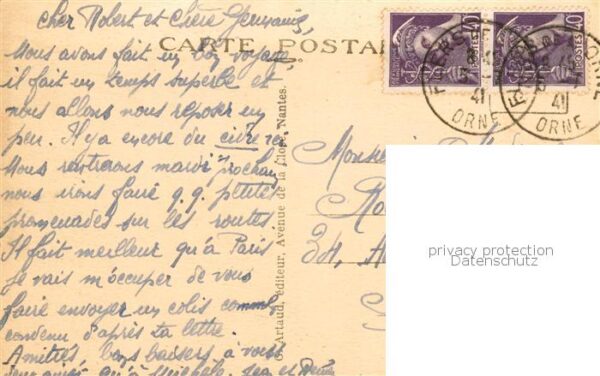 Cher Robert et Chère Germaine,
CARTE POSTALE
Nous avons fait un bon voyage,
il fait un temps superbe et
nous allons nous reposer un
peu. Il y a encore du cidre ici
Nous rentrerons mardi prochain
nous irons faire q.q. petites
promenades sur les routes
Il fait meilleur qu'à Paris
je vais m'occuper de vous
faire envoyer un colis comme
convenu d'après ta lettre.
Amitiés, bons baisers à vous
deux ainsi qu'à
G. Artaud, éditeur, Avenue de la Close, Nantes.
POSTES
FLERS
41
ORNE
FLERS
41
ORNE
34,
privacy protection
Datenschutz